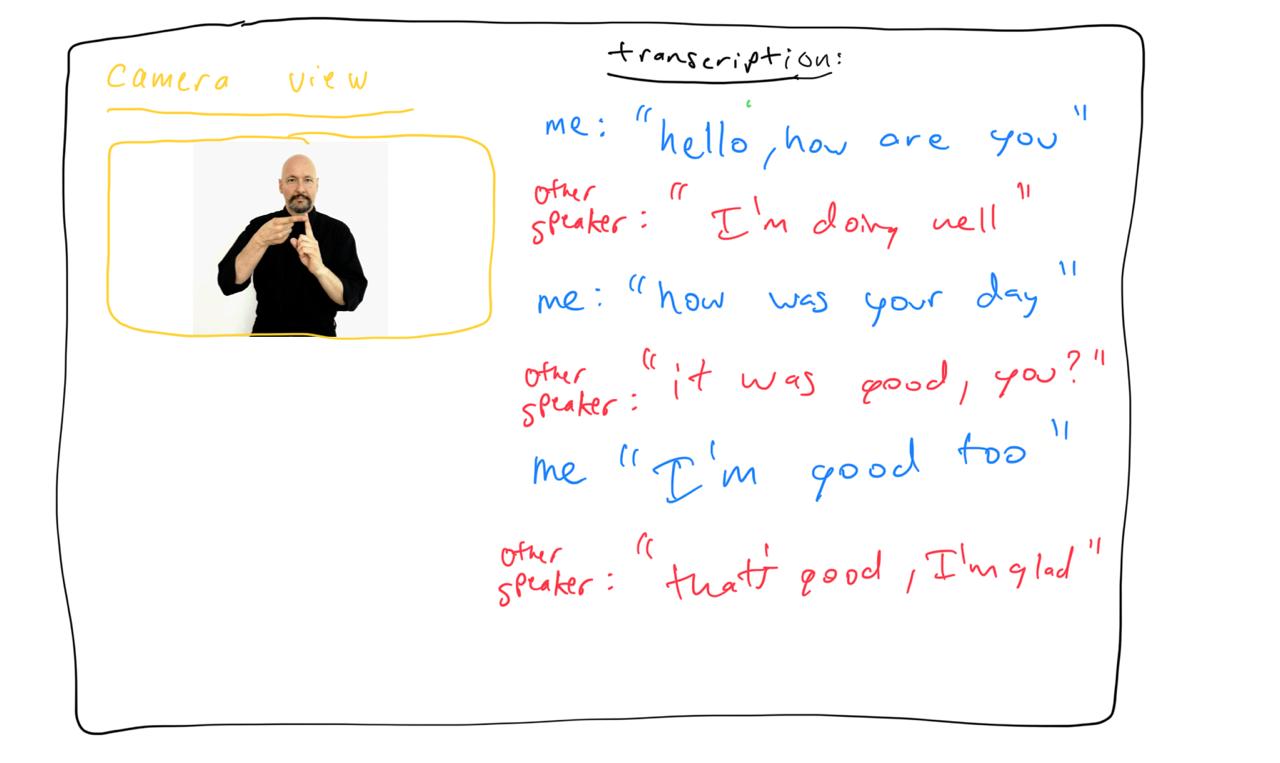 camera view
transcription:
me: "hello, how are you"
other speaker: "I'm doing well"
me: "how was your day"
other speaker: "it was good, you?"
me "I'm good too"
other speaker: "that's good, I'm glad"